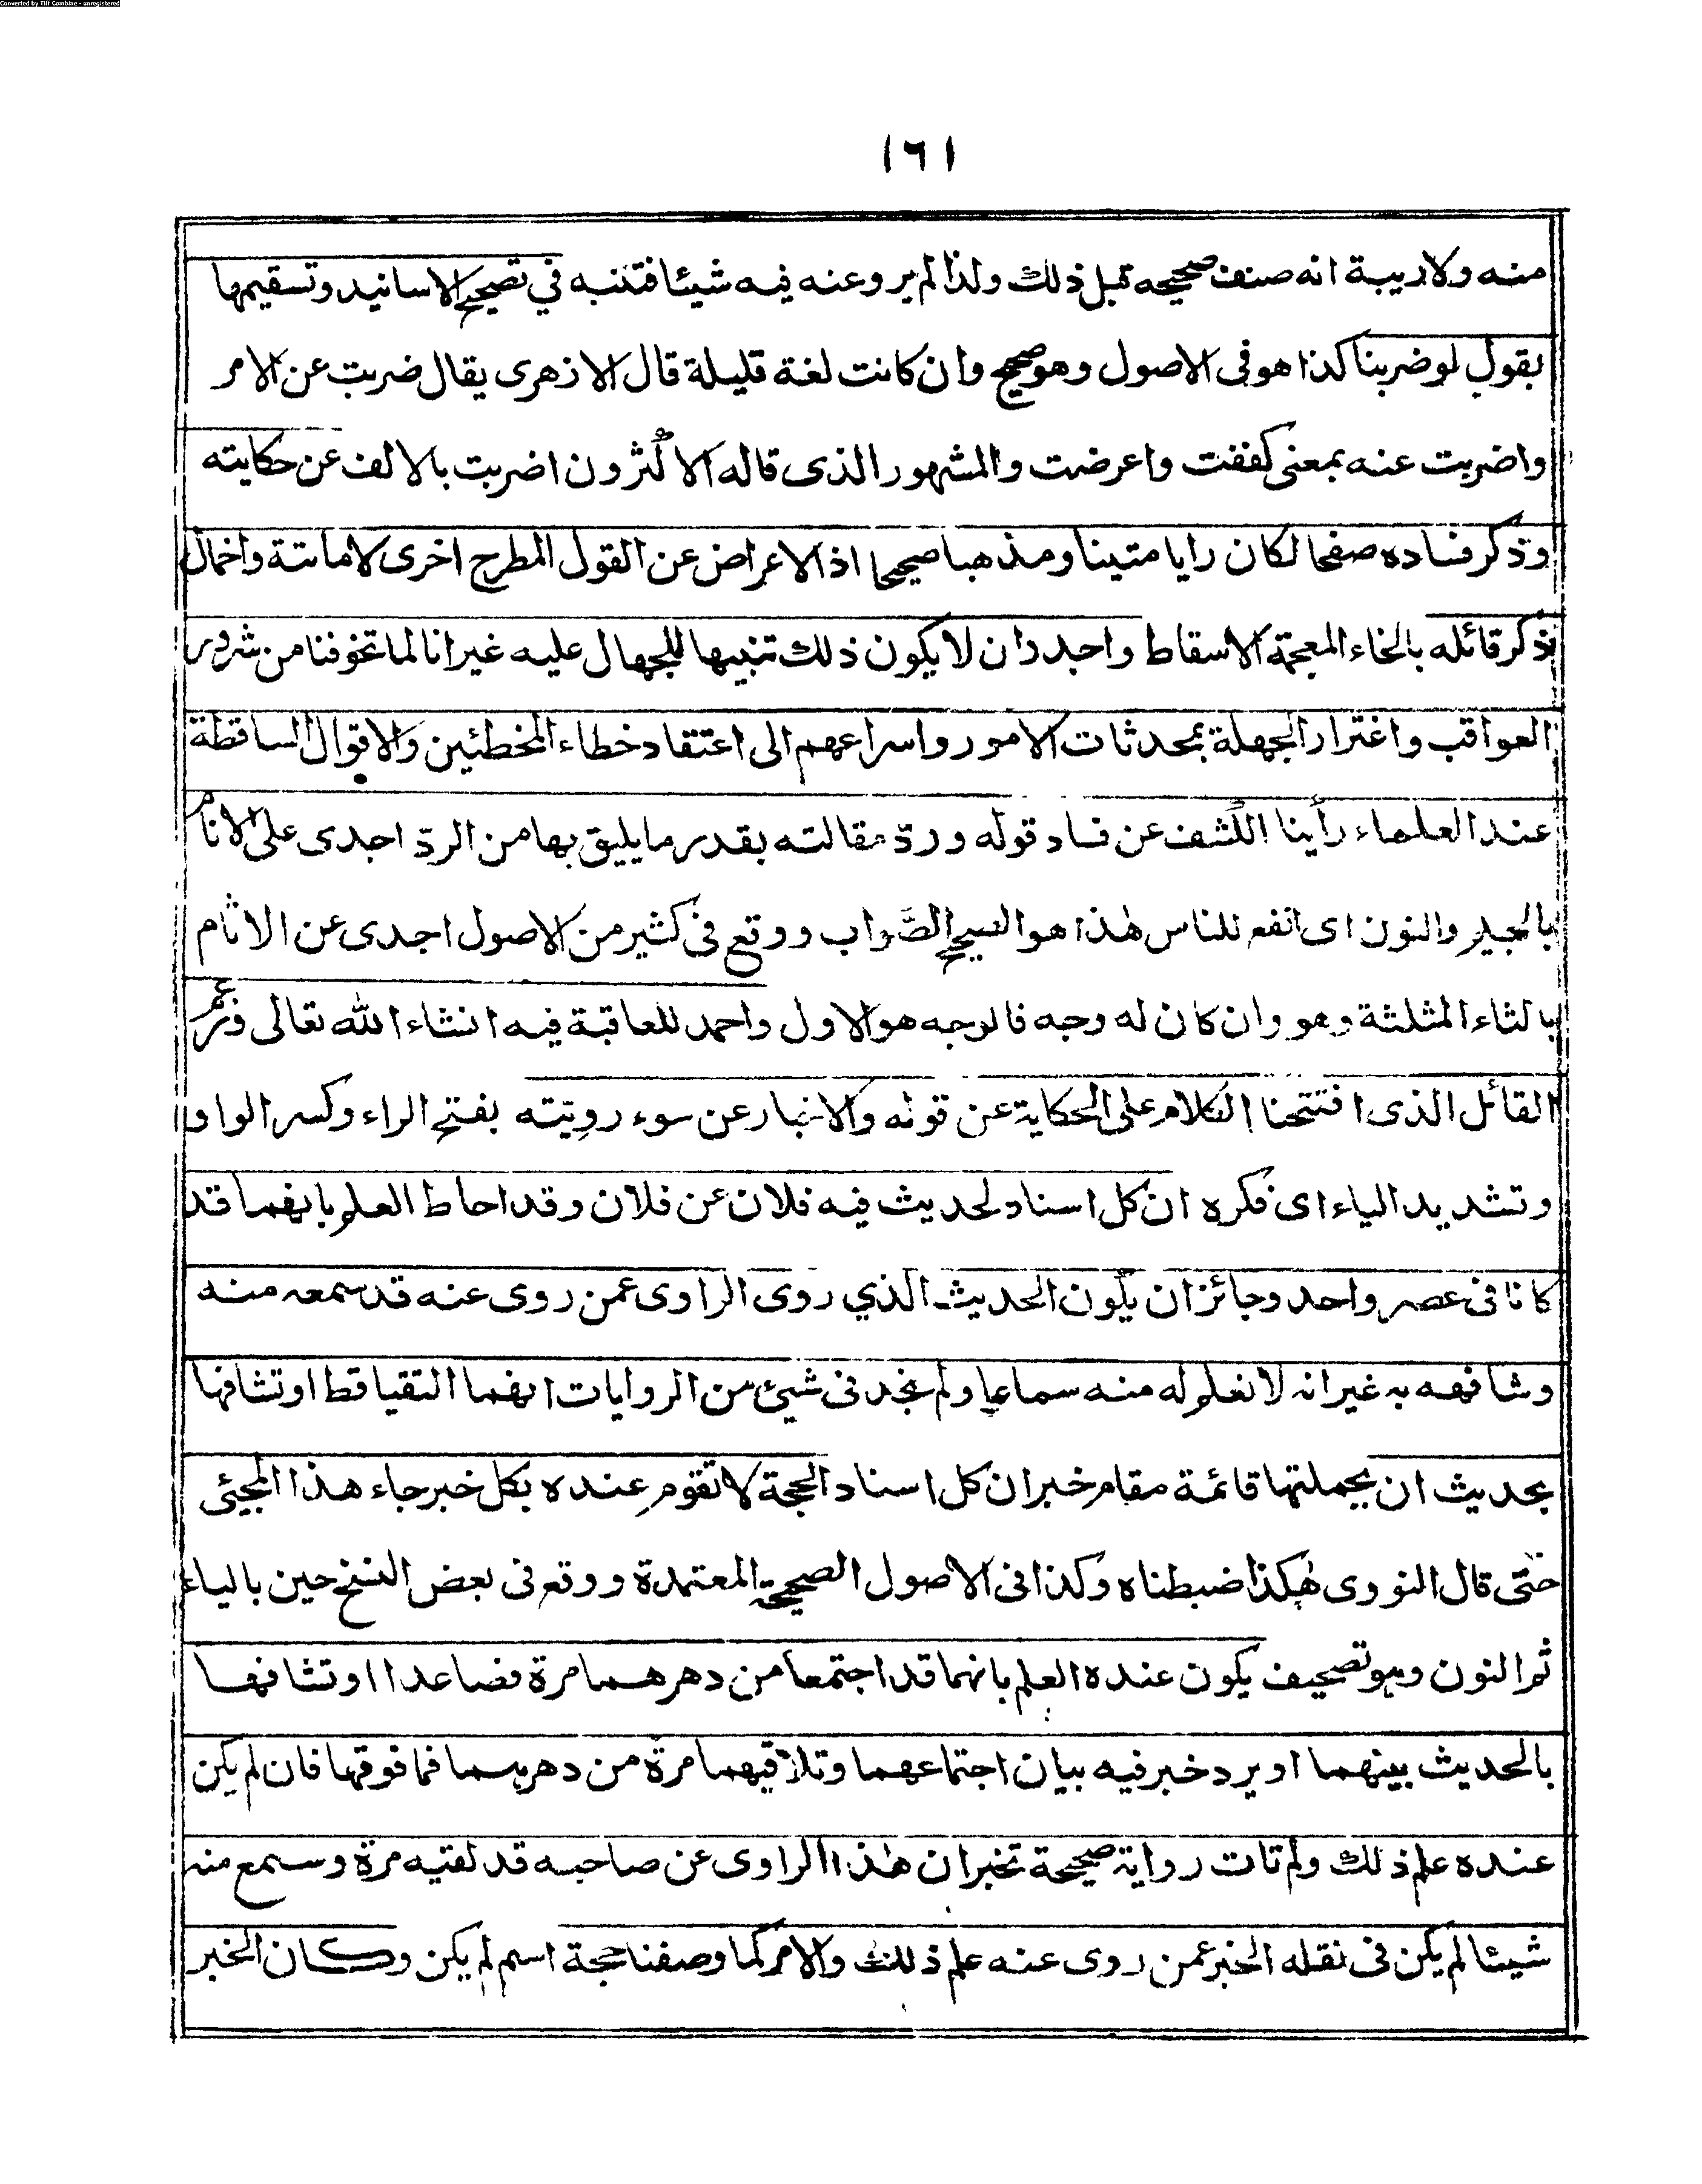 Converted by Tiff Combine - unregistered
١٦١
منه ولاريبة انه صنف صحيحه قبل ذلك ولذا لم يروعنه فيه شيئا فتنبه في تصحيح الاسانيد وتسقيمها
بقول لوضربنا كذا هو فى الاصول وهو صحيح وان كانت لغة قليلة قال الازهرى يقال ضربت عن الامر
واضربت عنه بمعنى كففت واعرضت والمشهور الذى قاله الاكثرون اضربت بالالف عن حكايته
وذكر فساده صفحا لكان رايا متينا ومذهبا صحيحا اذ الاعراض عن القول المطرح اخرى لاماتته واخمال
ذكر قائله بالخاء المعجمة الاسقاط واجدر ان لا يكون ذلك تنبيها للجهال عليه غير انا لما تخوفنا من شرور
العواقب واغترار الجهلة بمحدثات الامور واسراعهم الى اعتقاد خطاء المخطئين والاقوال الساقطة
عند العلماء رأينا الكشف عن فساد قوله وردّ مقالته بقدر ما يليق بها من الردّ اجدى على الانام
بالجيم والنون اى انفع للناس هٰذا هو الصحيح الصَّواب ووقع فى كثير من الاصول اجدى عن الاثام
بالثاء المثلثة وهو وان كان له وجه فالوجه هو الاول واحمد للعاقبة فيه انشاء الله تعالى وزعم
القائل الذى افتتحنا الكلام على الحكاية عن قوله والاخبار عن سوء رويّته بفتح الراء وكسر الواو
وتشديد الياء اى فكره ان كل اسناد لحديث فيه فلان عن فلان وقد احاط العلم بانهما قد
كانا فى عصر واحد وجائز ان يكون الحديث الذي روى الراوى عمن روى عنه قد سمعه منه
وشافهه به غير انه لا نعلم له منه سماعا ولم نجد فى شيئ من الروايات انهما التقيا قط او تشافها
بحديث ان بجملتها قائمة مقام خبر ان كل اسناد الحجة لا تقوم عنده بكل خبر جاء هذا المجيئى
حتى قال النووى هٰكذا ضبطناه وكذا فى الاصول الصحيحة المعتمدة ووقع فى بعض النسخ حين بالياء
ثم النون وهو تصحيف يكون عنده العلم بانهما قد اجتمعا من دهرهما مرة فصاعدا او تشافها
بالحديث بينهما او يرد خبر فيه بيان اجتماعهما وتلاقيهما مرة من دهرهما فما فوقها فان لم يكن
عنده علم ذلك ولم تات رواية صحيحة تخبر ان هٰذا الراوى عن صاحبه قد لقيه مرة وسمع منه
شيئا لم يكن فى نقله الخبر عمن روى عنه علم ذلك والامر كما وصفنا حجة اسم لم يكن وكان الخبر